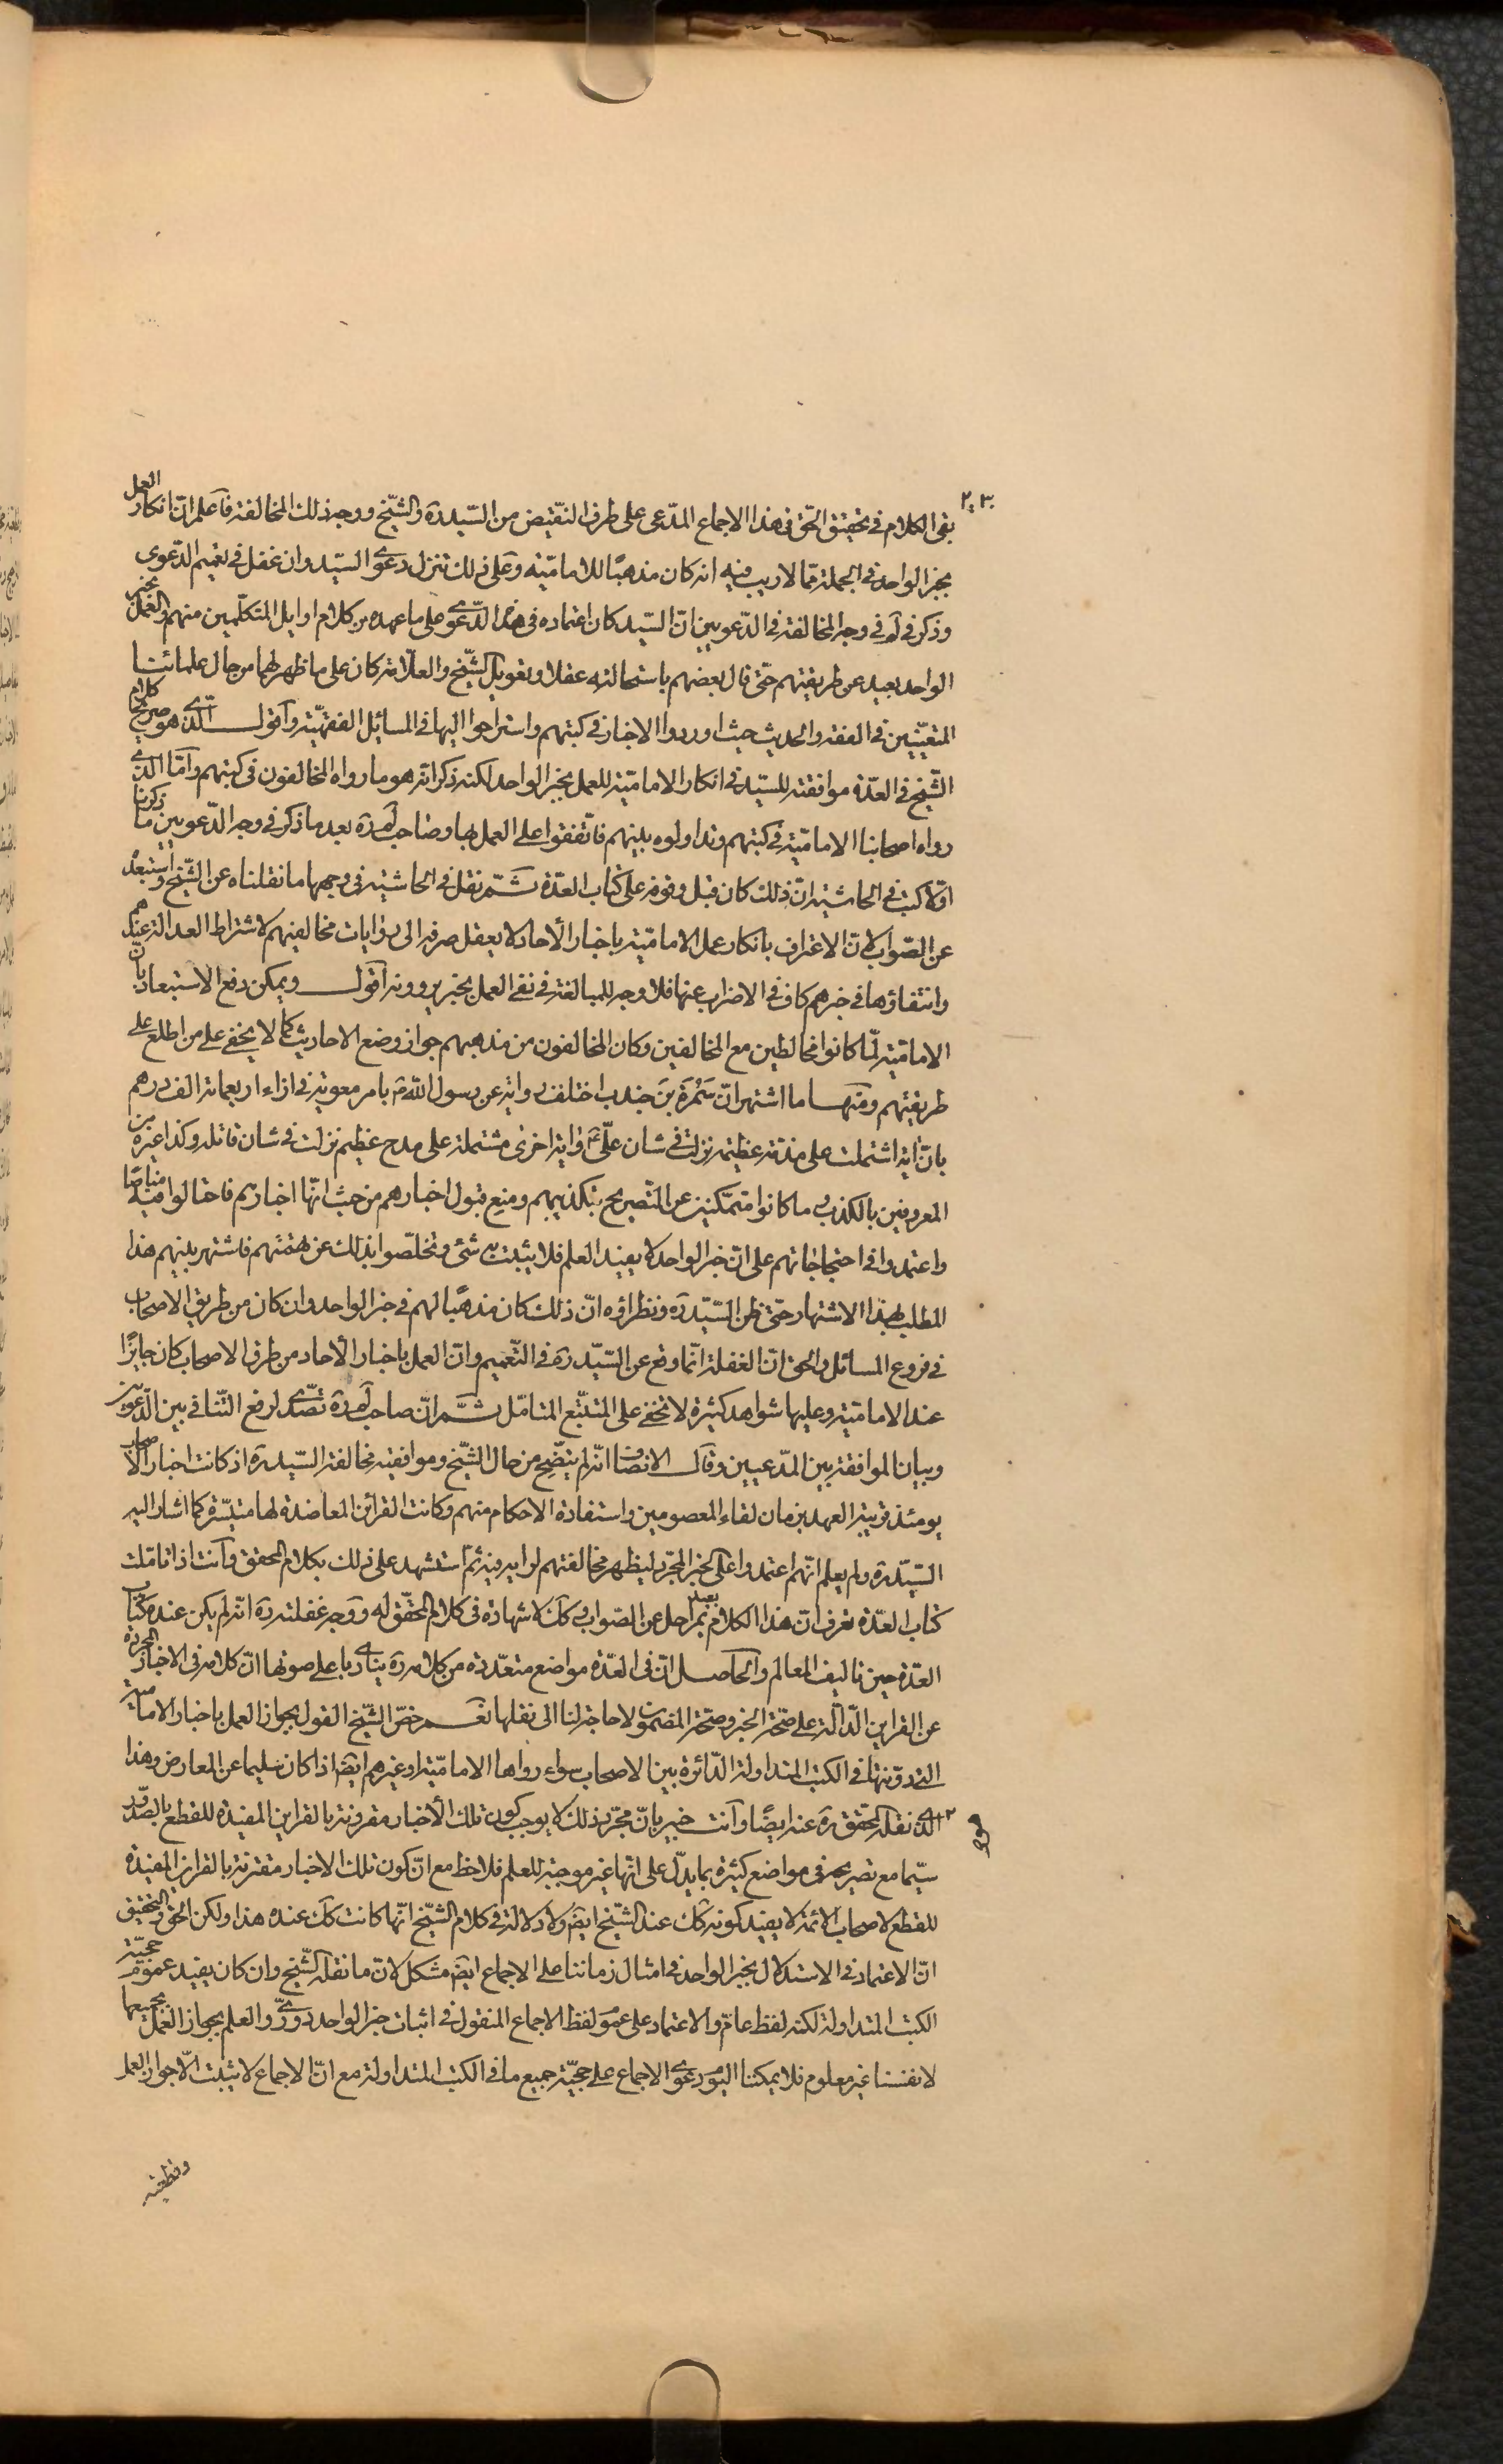 ٢٠٣
بقى الكلام فى تحقيق الحق فى هذا الاجماع المدّعى على طرف النقيض من السّيد ره والشيخ ووجه ذلك المخالفة فاعلم انّ انكار العمل
بخبر الواحد فى الجملة ممّا لا ريب فيه انه كان مذهبًا للاماميّة وعلى ذلك تنزل دعوى السّيد وان غفل فى تعميم الدّعوى
وذكر فى لم فى وجه المخالفة فى الدّعويين انّ السّيد كان اعتماده فى هذه الدّعوى على ما عهده من كلام اوايل المتكلّمين منهم والعمل بخبر
الواحد بعيد عن طريقتهم حتّى قال بعضهم باستحالته عقلا وتعويل الشّيخ والعلّامة كان على ما ظهر لهما من حال علمائنا
المتعيّنين فى الفقه والحديث حيث اوردوا الاخبار فى كتبهم واستراحوا اليها فى المسائل الفقهيّة واقول الّذى هو صريح كلام
الشّيخ فى العدّة موافقته للسّيد فى انكار الاماميّة للعمل بخبر الواحد لكنه ذكر انّه هو ما رواه المخالفون فى كتبهم وامّا الّذى
رواه اصحابنا الاماميّة فى كتبهم وتداولوه بينهم فاتّفقوا على العمل بها وصاحب لم ره بعد ما ذكر فى وجه الدّعويين ما ذكرنا
اوّلا كتب فى الحاشية انّ ذلك كان قبل وقوفه على كتاب العدّة ثمّ نقل فى الحاشية فى وجهها ما نقلناه عن الشّيخ واستبعده
عن الصّواب لانّ الاعتراف بانكار عمل الاماميّة باخبار الآحاد لا يعقل صرفه الى روايات مخالفيهم لاشتراط العدالة عندهم
وانتفاؤها فى خبرهم كاف فى الاضراب عنها فلا وجه للمبالغة فى نفى العمل بخبر يروونه اقول ويمكن دفع الاستبعاد بانّ
الاماميّة لمّا كانوا مخالطين مع المخالفين وكان المخالفون من مذهبهم جواز وضع الاحاديث كما لا يخفى على من اطلع على
طريقتهم ومنها ما اشتهر انّ سَمُرَة بن جندب اختلف رواية عن رسول اللّه ص بامر معوية فى ازاء اربعمائة الف درهم
بانّ اية اشتملت على مذمّة عظيمة نزلت فى شان علىّ ع واية اخرى مشتملة على مدح عظيم نزلت فى شان قاتله وكذا غيره من
المعروفين بالكذب وما كانوا متمكّنين عن التّصريح بتكذيبهم ومنع قبول اخبارهم من حيث انّها اخبارهم فاحتالوا فيه مناصًا
واعتمدوا فى احتجاجاتهم على انّ خبر الواحد لا يفيد العلم فلا يثبت به شئ وتخلّصوا بذلك عن تهمتهم فاشتهر بينهم هذا
المطلب بهذا الاشتهار حتّى ظن السّيّد ره ونظراؤه انّ ذلك كان مذهبًا لهم فى خبر الواحد وان كان من طريق الاصحاب
فى فروع المسائل والحق انّ الغفلة انّما وقع عن السّيّد ره فى التّعميم وانّ العمل باخبار الآحاد من طرف الاصحاب كان جايزًا
عند الاماميّة وعليها شواهد كثيرة لا تخفى على المتتبّع المتامّل ثمّ انّ صاحب لم ره تصدّى لرفع التّنافى بين الدّعويين
وبيان الموافقة بين المدّعيين وقال الانصاف انّه لم يتّضح من حال الشّيخ وموافقيه مخالفة السّيد ره اذ كانت اخبار الاصحاب
يومئذ قريبة العهد بزمان لقاء المعصومين واستفادة الاحكام منهم وكانت القرائن المعاضدة لها متيسّرة كما اشار اليه
السّيّد ره ولم يعلم انّهم اعتمدوا على الخبر المجرّد ليظهر مخالفتهم لرايه فيه ثمّ استشهد على ذلك بكلام المحقق وانت اذا تامّلت
كتاب العدّة تعرف انّ هذا الكلام بعيد بمراحل عن الصّواب وكك لا شهادة فى كلام المحقّق له ووجه غفلته ره انّه لم يكن عنده كتاب
العدّة حين تاليف المعالم والحاصل انّ فى العدّة مواضع متعدّدة من كلامه ره ينادى باعلى صوتها انّ كلامه فى الاخبار المجردة
عن القراين الدّالّة على صحّة الخبر وصحّة المضمون لا حاجة لنا الى نقلها نعم خصّ الشّيخ القول بجواز العمل باخبار الاماميّة
التى دوّنتها فى الكتب المتداولة الدّائرة بين الاصحاب سواء رواها الاماميّة او غيرهم ايضا اذا كان سليما عن المعارض وهذا
الّذى نقله المحقّق ره عنه ايضًا وانت خبير بانّ مجرّد ذلك لا يوجب كون تلك الأخبار مقرونة بالقراين المفيدة للقطع بالصّدور
سيّما مع تصريحه فى مواضع كثيرة بما يدلّ على انّها غير موجبة للعلم فلاحظ مع انّ كون تلك الاخبار مقترنة بالقراين المفيدة
للقطع لاصحاب الائمة لا يفيد كونه كك عند الشّيخ ايضا ولا دلالة فى كلام الشّيخ انّها كانت كك عنده هذا ولكن الحق والتحقيق
انّ الاعتماد فى الاستدلال بخبر الواحد فى امثال زماننا على الاجماع ايضا مشكل لانّ ما نقله الشّيخ وان كان يفيد عموم حجيّة
الكتب المتداولة لكنه لفظ عامّ والاعتماد على عموم لفظ الاجماع المنقول فى اثبات خبر الواحد دورىّ والعلم بجواز العمل بجميعها
لانفسنا غير معلوم فلا يمكننا اليوم دعوى الاجماع على حجيّة جميع ما فى الكتب المتداولة مع انّ الاجماع لا يثبت الّا جواز العمل